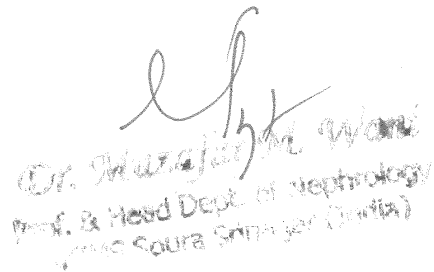 Dr. M Wani
Prof. & Head Dept. of Nephrology
Soura Srinagar (India)